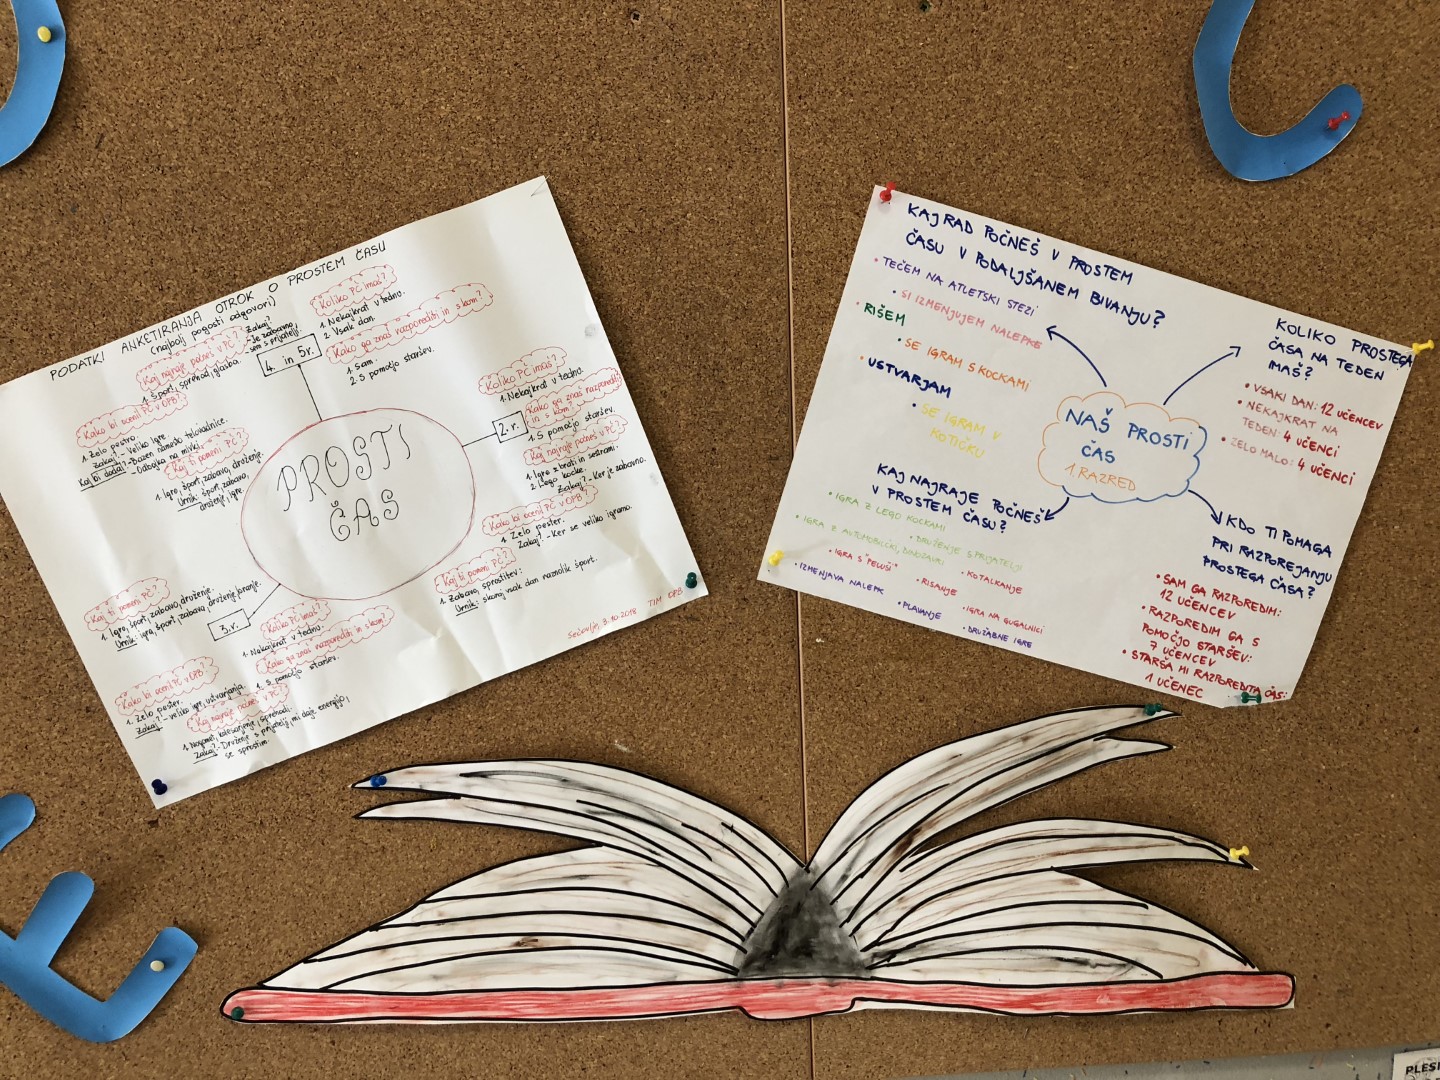 PODATKI ANKETIRANJA OTROK O PROSTEM ČASU
(najbolj pogosti odgovori)
Koliko PČ imaš?
1. Nekajkrat v tednu.
2. Vsak dan.
Kako ga znaš razporediti in s kom?
1. Sam.
2. S pomočjo staršev.
Kaj najraje počneš v PČ?
1. Šport, sprehod, glasba.
Zakaj?
- Je zabavno,
- sem s prijatelji.
4. in 5.r.
Kako bi ocenil PČ v OPB?
1. Zelo pestro.
Zakaj? - Veliko iger.
Kaj bi dodal? - Bazen namesto telovadnice.
- Odbojka na mivki.
Kaj ti pomeni PČ?
1. Igro, šport, zabavo, druženje.
Urnik: šport, zabava,
druženje, igre.
PROSTI
ČAS
2. r.
Koliko PČ imaš?
1. Nekajkrat v tednu.
Kako ga znaš razporediti
in s kom?
1. S pomočjo staršev.
Kaj najraje počneš v PČ?
1. Igre z brati in sestrami.
2. Lego kocke.
Zakaj? - Ker je zabavno.
Kako bi ocenil PČ v OPB?
1. Zelo pester.
Zakaj? - Ker se veliko igramo.
Kaj ti pomeni PČ?
1. Zabavo, sprostitev.
Urnik: skoraj vsak dan raznolik šport.
3.r.
Kaj ti pomeni PČ?
1. Igro, šport, zabavo, druženje.
Urnik: igra, šport, zabava, druženje, igranje.
Koliko PČ imaš?
1. Nekajkrat v tednu.
Kako ga znaš razporediti in s kom?
1. S pomočjo staršev.
Kako bi ocenil PČ v OPB?
1. Zelo pester.
Zakaj? - Veliko iger, ustvarjanja.
Kaj najraje počneš v PČ?
1. Nogomet, kolesarjenje, sprehodi.
Zakaj? - Druženje s prijatelji, mi daje energijo,
se sprostim.
Sečovlje, 8.10.2018 TIM OPB
KAJ RAD POČNEŠ V PROSTEM
ČASU V PODALJŠANEM BIVANJU?
• TEČEM NA ATLETSKI STEZI
• SI IZMENJUJEM NALEPKE
• RIŠEM
• SE IGRAM S KOCKAMI
• USTVARJAM
• SE IGRAM V
KOTIČKU
NAŠ PROSTI
ČAS
1. RAZRED
KOLIKO PROSTEGA
ČASA NA TEDEN
IMAŠ?
• VSAKI DAN: 12 UČENCEV
• NEKAJKRAT NA
TEDEN: 4 UČENCI
• ZELO MALO: 4 UČENCI
KAJ NAJRAJE POČNEŠ
V PROSTEM ČASU?
• IGRA Z LEGO KOCKAMI
• DRUŽENJE S PRIJATELJI
• IGRA Z AUTOMOBILČKI, DINOZAVRI
• IGRA S "PELUŠI"
• RISANJE
• KOTALKANJE
• IZMENJAVA NALEPK
• PLAVANJE
• IGRA NA GUGALNICI
• DRUŽABNE IGRE
KDO TI POMAGA
PRI RAZPOREJANJU
PROSTEGA ČASA?
• SAM GA RAZPOREDIM:
12 UČENCEV
• RAZPOREDIM GA S
POMOČJO STARŠEV:
7 UČENCEV
• STARŠA MI RAZPOREDITA ČAS:
1 UČENEC